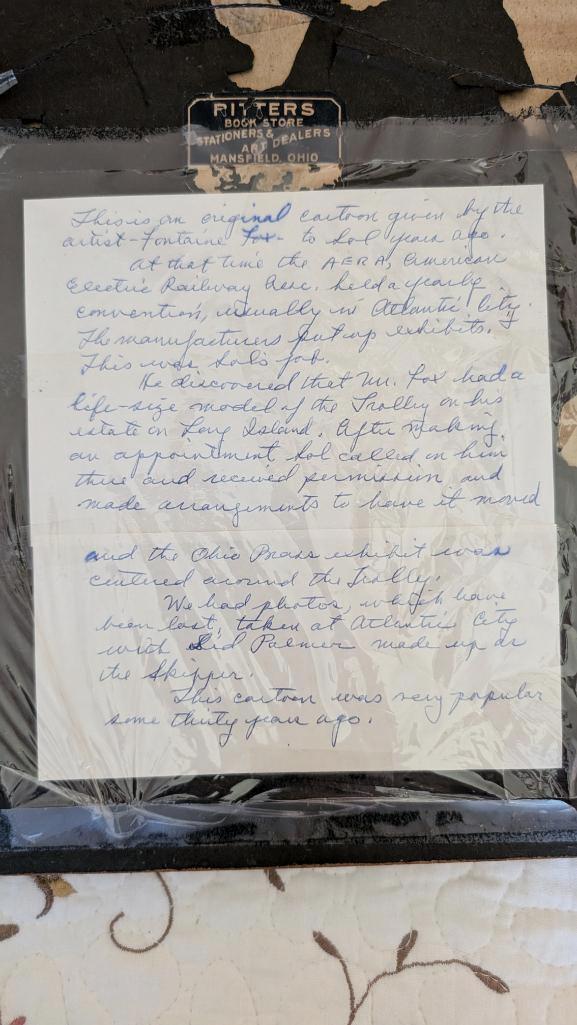 RITTERS
BOOK STORE
STATIONERS &
ART DEALERS
MANSFIELD, OHIO
This is an original cartoon given by the
artist - Fontaine Fox - to Sol years ago.
At that time the AERA, American
Electric Railway Assc. held a yearly
convention, usually in Atlantic City.
The manufacturers put up exhibits.
This was Sol's job.
He discovered that Mr. Fox had a
life-size model of the Trolley on his
estate on Long Island. After making
an appointment, Sol called on him
there and received permission and
made arrangements to have it moved
and the Ohio Brass exhibit was
centered around the Trolly.
We had photos, which have
been lost, taken at Atlantic City
with Sid Palmer made up as
the Skipper.
This cartoon was very popular
some thirty years ago.